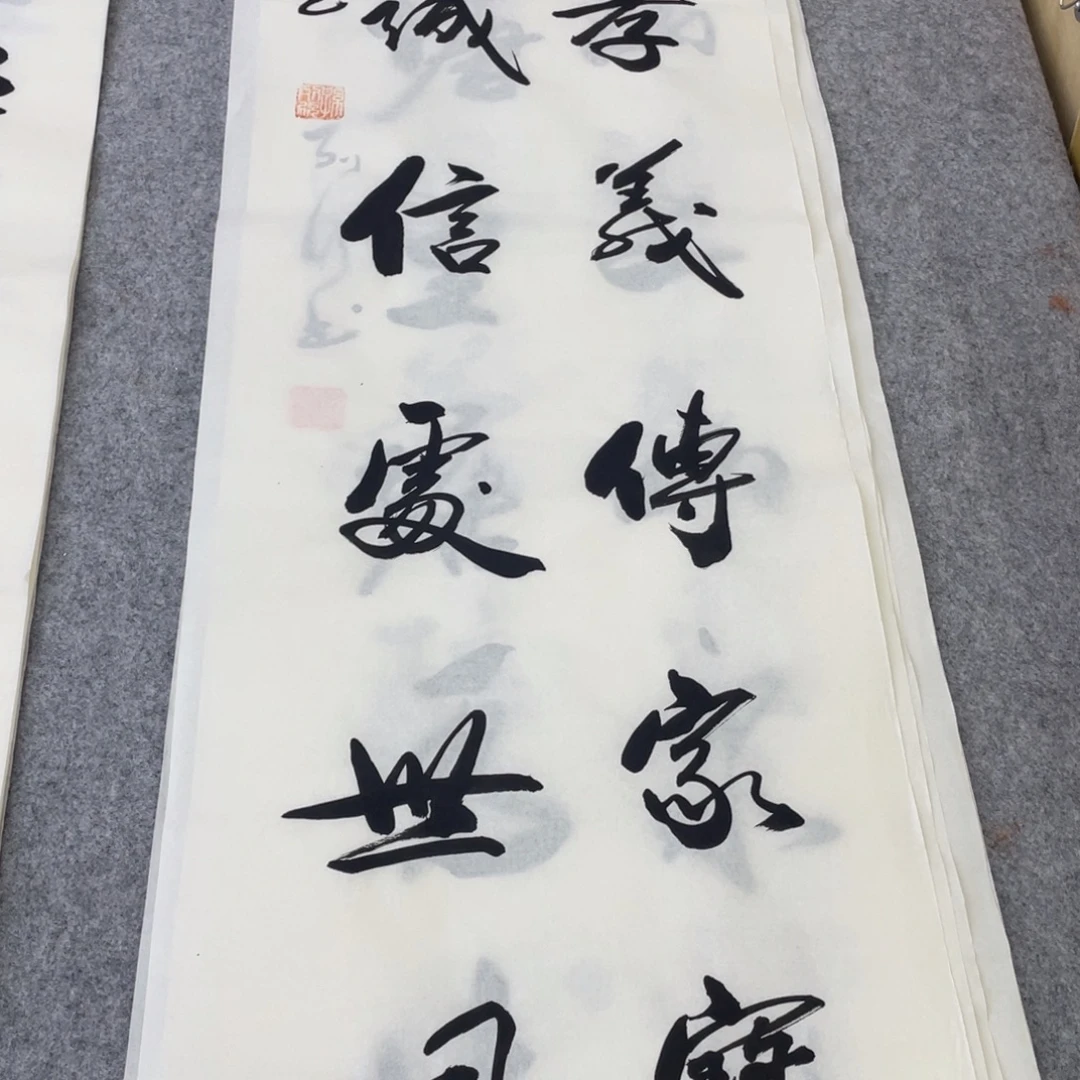 孝義傳家
誠信處世